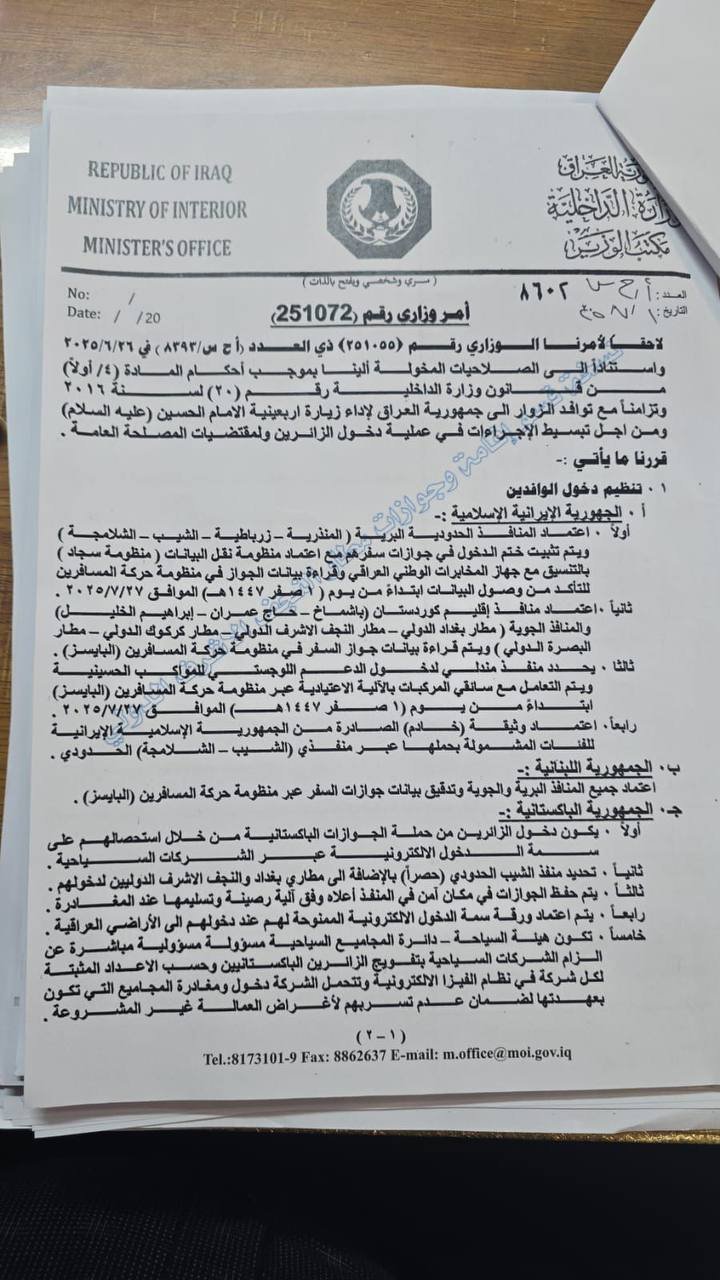 REPUBLIC OF IRAQ
MINISTRY OF INTERIOR
MINISTER'S OFFICE
العراق
وزارة الداخلية
مكتب الوزير
( سري وشخصي ويفتح بالذات )
No: /
Date: / /20
العدد: ٨٦٠٢
التاريخ:
أمر وزاري رقم (251072)
لاحقاً لأمرنا الوزاري رقم (٢٥١٠٥٥) ذي العدد (أ ح س/٨٣٩٣) في ٢٠٢٥/٦/٢٦
واستناداً الى الصلاحيات المخولة ألينا بموجب أحكام المادة (٤/ أولاً)
من قانون وزارة الداخلية رقم (٢٠) لسنة ٢٠١٦
وتزامناً مع توافد الزوار الى جمهورية العراق لإداء زيارة اربعينية الامام الحسين (عليه السلام)
ومن اجل تبسيط الإجراءات في عملية دخول الزائرين ولمقتضيات المصلحة العامة .
قررنا ما يأتي :-
١ ٠ تنظيم دخول الوافدين
أ ٠ الجمهورية الإيرانية الإسلامية :-
أولاً ٠ اعتماد المنافذ الحدودية البرية ( المنذرية – زرباطية – الشيب – الشلامجة )
ويتم تثبيت ختم الدخول في جوازات سفرهم مع اعتماد منظومة نقل البيانات ( منظومة سجاد )
بالتنسيق مع جهاز المخابرات الوطني العراقي وقراءة بيانات الجواز في منظومة حركة المسافرين
للتأكد من وصول البيانات ابتداءً من يوم ( ١ صفر ١٤٤٧هـ) الموافق ٢٠٢٥/٧/٢٧ .
ثانياً ٠ اعتماد منافذ إقليم كوردستان (باشماخ – حاج عمران – إبراهيم الخليل)
والمنافذ الجوية ( مطار بغداد الدولي – مطار النجف الاشرف الدولي – مطار كركوك الدولي – مطار
البصرة الدولي ) ويتم قراءة بيانات جواز السفر في منظومة حركة المسافرين (البايسز) .
ثالثا ٠ يحدد منفذ مندلي لدخول الدعم اللوجستي للمواكب الحسينية
ويتم التعامل مع سائقي المركبات بالآلية الاعتيادية عبر منظومة حركة المسافرين (البايسز)
ابتداءً من يوم (١ صفر ١٤٤٧هـ) الموافق ٢٠٢٥/٧/٢٧ .
رابعاً ٠ اعتماد وثيقة (خادم) الصادرة من الجمهورية الإسلامية الإيرانية
للفئات المشمولة بحملها عبر منفذي (الشيب – الشلامجة) الحدودي .
ب ٠ الجمهورية اللبنانية :-
اعتماد جميع المنافذ البرية والجوية وتدقيق بيانات جوازات السفر عبر منظومة حركة المسافرين (البايسز) .
جـ ٠ الجمهورية الباكستانية :-
أولاً ٠ يكون دخول الزائرين من حملة الجوازات الباكستانية من خلال استحصالهم على
سمة الدخول الالكترونية عبر الشركات السياحية .
ثانياً ٠ تحديد منفذ الشيب الحدودي (حصراً) بالإضافة الى مطاري بغداد والنجف الاشرف الدوليين لدخولهم .
ثالثاً ٠ يتم حفظ الجوازات في مكان آمن في المنفذ أعلاه وفق آلية رصينة وتسليمها عند المغادرة .
رابعاً ٠ يتم اعتماد ورقة سمة الدخول الالكترونية الممنوحة لهم عند دخولهم الى الأراضي العراقية .
خامساً ٠ تكون هيئة السياحة – دائرة المجاميع السياحية مسؤولة مسؤولية مباشرة عن
الزام الشركات السياحية بتفويج الزائرين الباكستانيين وحسب الاعداد المثبتة
لكل شركة في نظام الفيزا الالكترونية وتتحمل الشركة دخول ومغادرة المجاميع التي تكون
بعهدتها لضمان عدم تسربهم لأغراض العمالة غير المشروعة .
( ١ – ٢ )
Tel.:8173101-9 Fax: 8862637 E-mail: m.office@moi.gov.iq